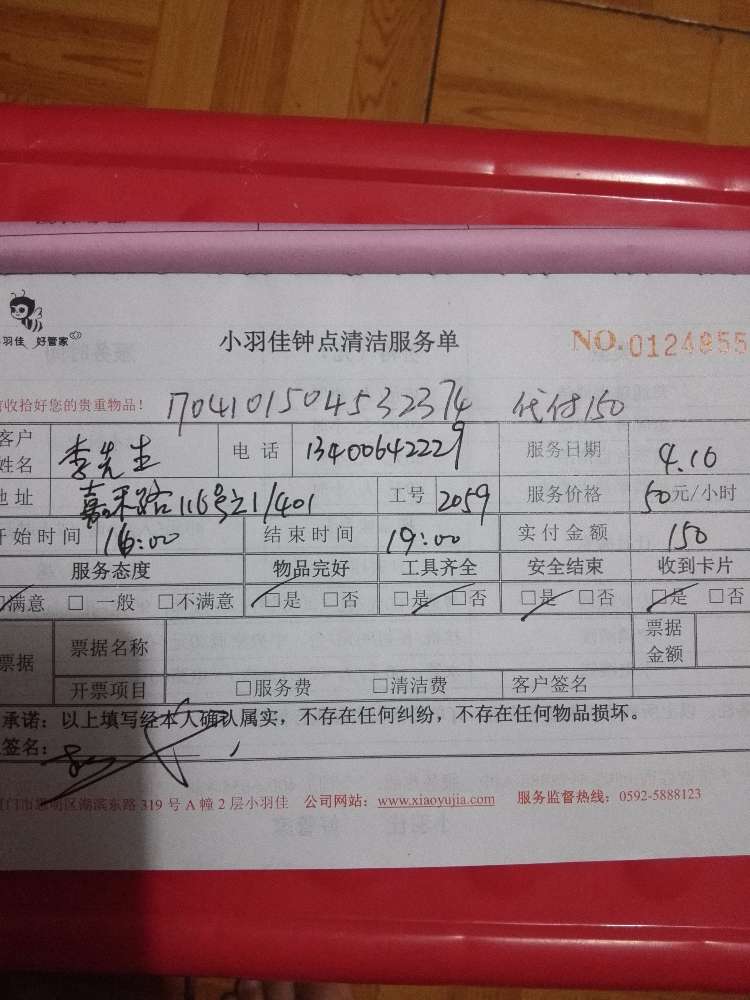 羽佳 好管家
小羽佳钟点清洁服务单
NO.0124955
收拾好您的贵重物品！ 1704101504532374 代付150
客户姓名 李先生 电话 13400642229 服务日期 4.10
地址 嘉禾路116号之1/401 工号 2059 服务价格 50元/小时
开始时间 16:00 结束时间 19:00 实付金额 150
服务态度 物品完好 工具齐全 安全结束 收到卡片
满意 □ 一般 □不满意 □是 □否 □是 □否 □是 □否 □是 □否
票据 票据名称 票据金额
开票项目 □服务费 □清洁费 客户签名
承诺：以上填写经本人确认属实，不存在任何纠纷，不存在任何物品损坏。
签名：
门市思明区湖滨东路 319 号 A 幢 2 层小羽佳 公司网站：www.xiaoyujia.com 服务监督热线：0592-5888123